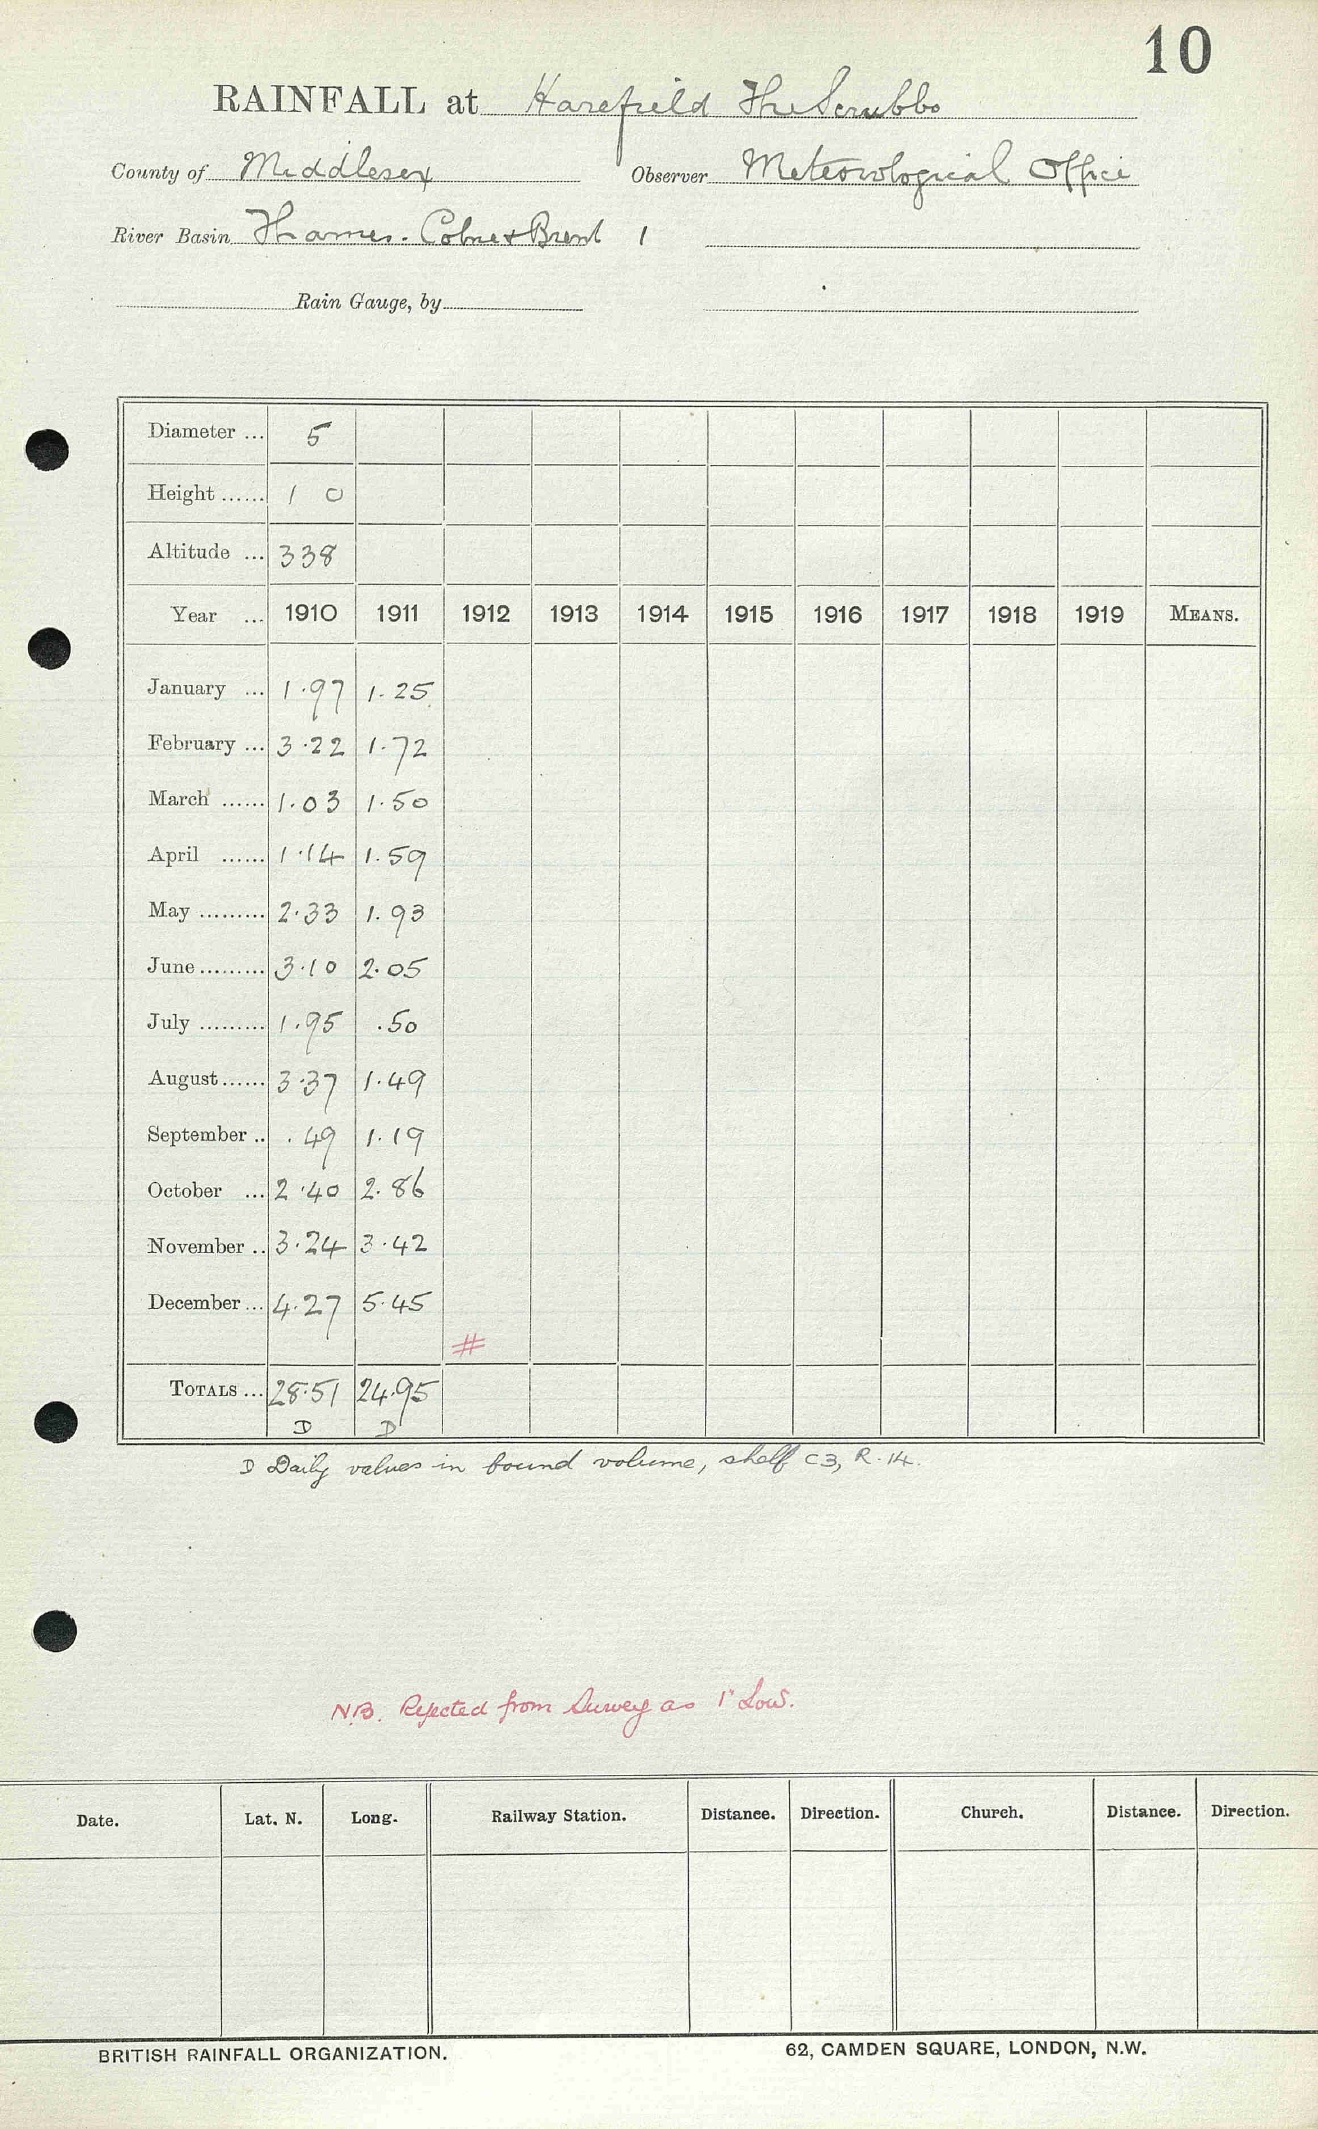 10
RAINFALL at Harefield The Scrubbs
County of Middlesex Observer Meteorological Office
River Basin Thames. Colne & Brent 1
Rain Gauge, by
Diameter ... 5
Height ...... 1 0
Altitude ... 338
Year ... 1910 1911 1912 1913 1914 1915 1916 1917 1918 1919 MEANS.
January ... 1.97 1.25
February ... 3.22 1.72
March ...... 1.03 1.50
April ...... 1.14 1.59
May ......... 2.33 1.93
June ......... 3.10 2.05
July ......... 1.95 .50
August ...... 3.37 1.49
September .. .49 1.19
October ... 2.40 2.86
November .. 3.24 3.42
December ... 4.27 5.45
#
TOTALS ... 28.51 24.95
D D
D Daily values in bound volume, shelf C3, R.14.
N.B. Rejected from Survey as 1" Low.
Date. Lat. N. Long. Railway Station. Distance. Direction. Church. Distance. Direction.
BRITISH RAINFALL ORGANIZATION. 62, CAMDEN SQUARE, LONDON, N.W.